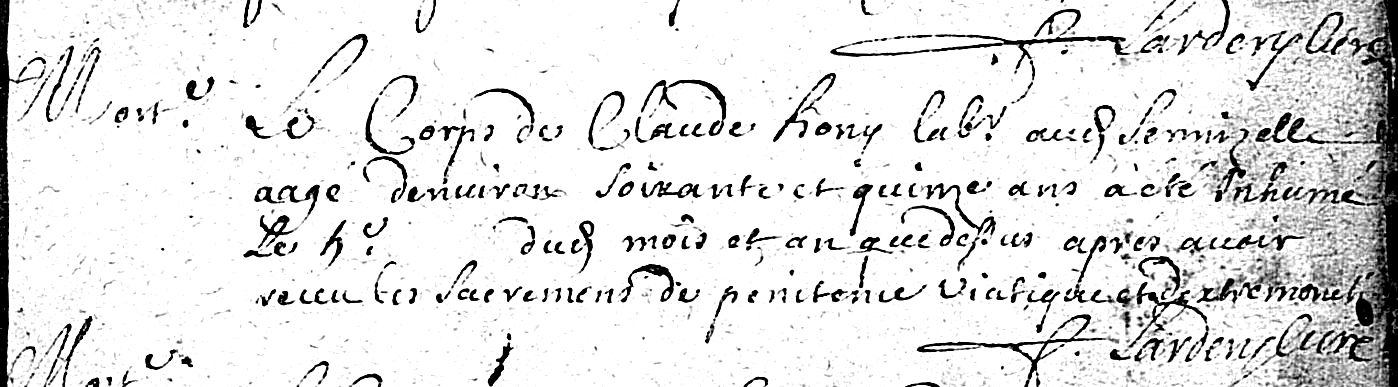 F. Lardery Curé
Mort.e Le Corps de Claude hony labr aud Sermizelle
aagé denuiron soixante et quinze ans a été Inhumé
Le h.e dud mois et an que dessus aprés auoir
receu les sacremens de penitence viatique et dextremoncti
F. Lardery Curé
Mort.e